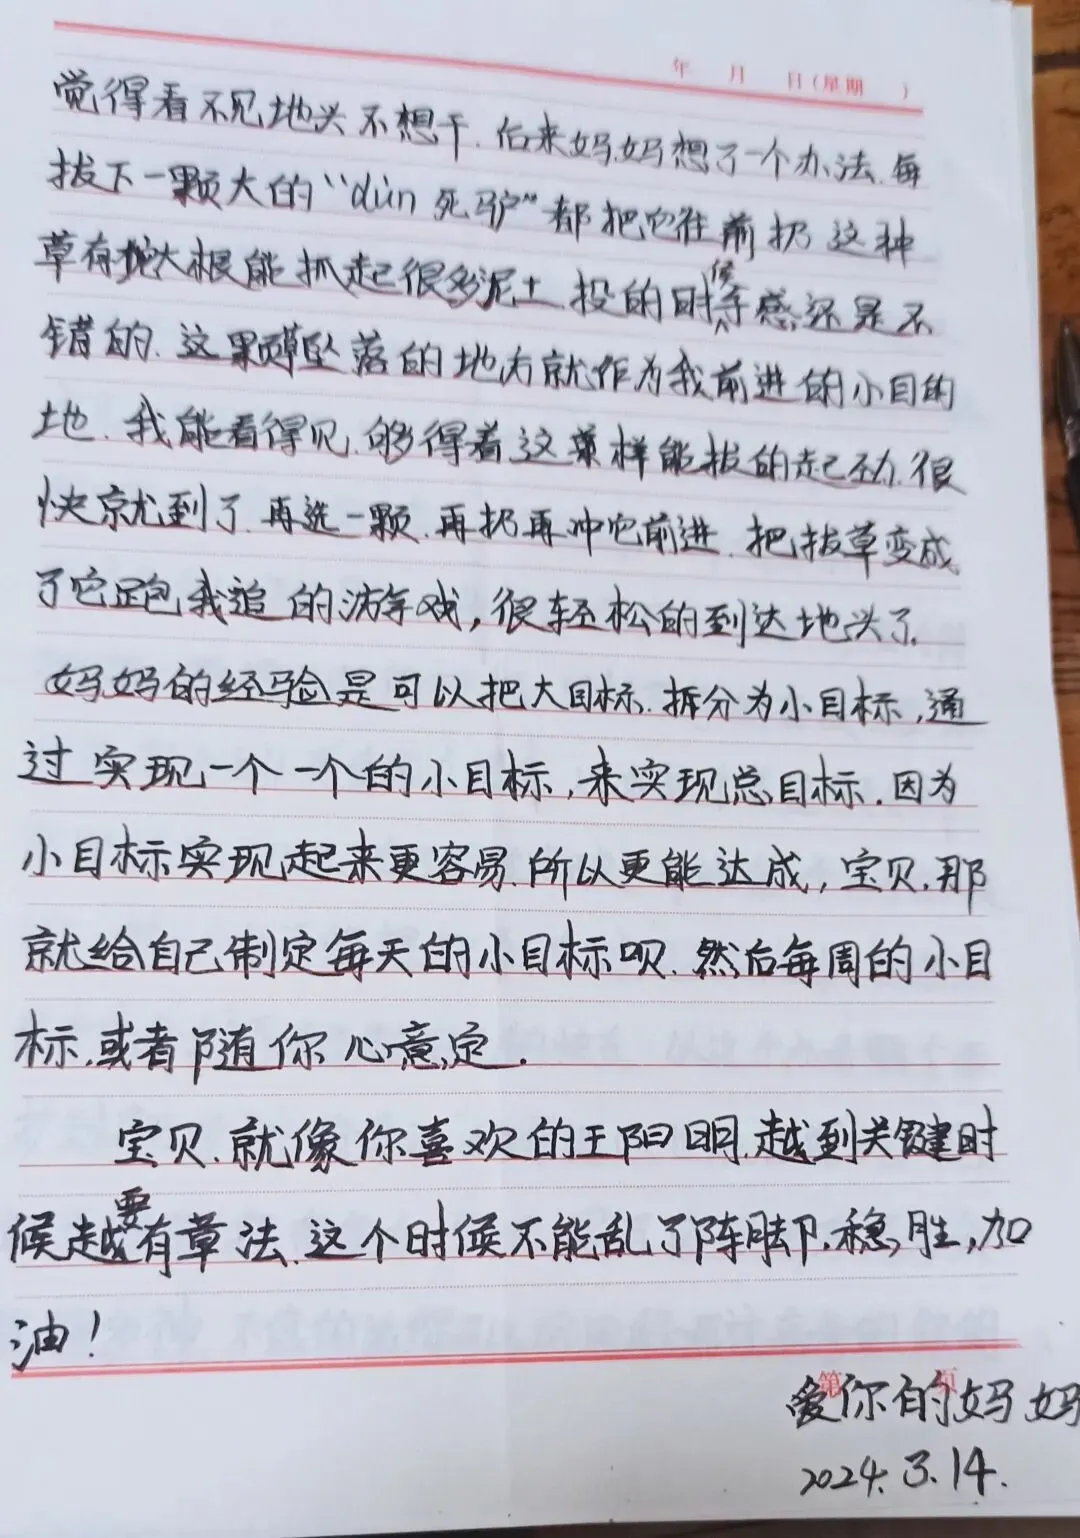 年 月 日(星期 )
觉得看不见地头不想干.后来妈妈想了一个办法.每
拔下一颗大的“dùn死驴”都把它往前扔 这种
草有庞大根能抓起很多泥土 投的时候手感还是不
错的.这颗草坠落的地方就作为我前进的小目的
地.我能看得见.够得着 这样能拔的起劲.很
快就到了 再选一颗.再扔再冲它前进.把拔草变成
了它跑我追的游戏,很轻松的到达地头了.
妈妈的经验是可以把大目标.拆分为小目标,通
过实现一个一个的小目标,来实现总目标.因为
小目标实现起来更容易.所以更能达成,宝贝.那
就给自己制定每天的小目标呗.然后每周的小目
标.或者随你心意定.
宝贝.就像你喜欢的王阳明.越到关键时
候越要有章法.这个时候不能乱了阵脚.稳,胜,加
油!
第 页
爱你的妈妈
2024.3.14.